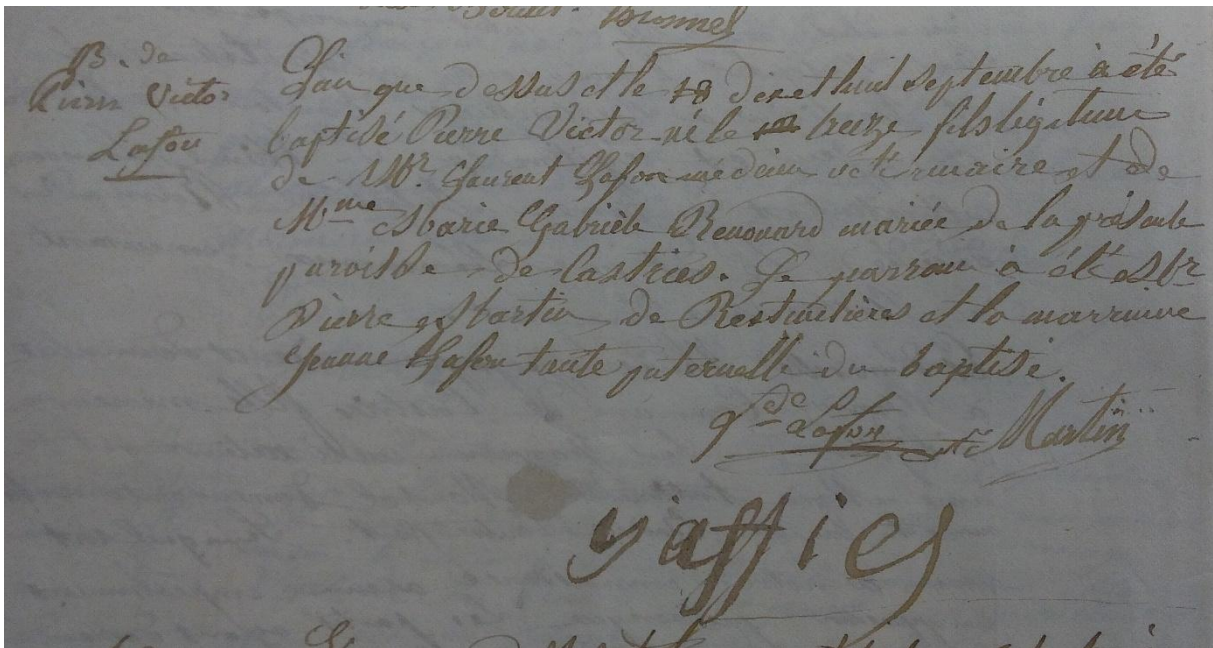 Bonnet
B. de
Pierre Victor
Lafon
L'an que dessus et le 18 dix et huit septembre à été
baptisé Pierre Victor né le treize fils légitime
de Mr. Laurent Lafon médecin vétérinaire et de
Mme Marie Gabrièle Renouard mariée de la présente
paroisse de Castries. Le parrain à été Mr
Pierre Martin de Restinclières et la marraine
Jeanne Lafon tante paternelle du baptisé.
Lafon Martin